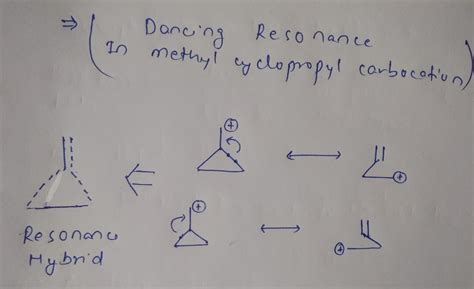 ⇒ Dancing Resonance
(In methyl cyclopropyl carbocation)
⊕
⊕
⊕
⊕
Resonance
Hybrid